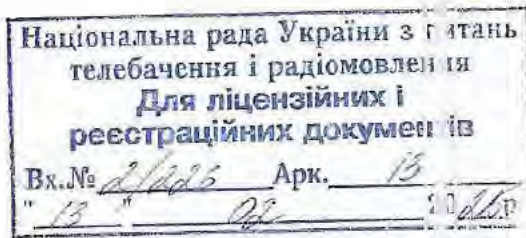 Національна рада України з питань
телебачення і радіомовлення
Для ліцензійних і
реєстраційних документів
Вх.№ Арк. 13
"13" 02 20 25р